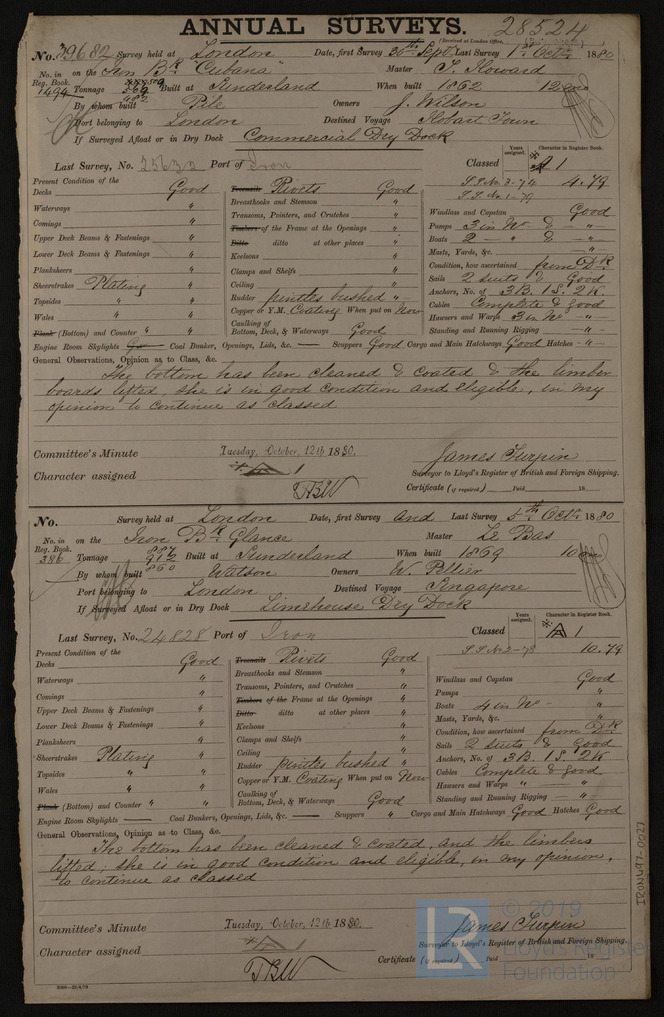 ANNUAL SURVEYS. 28524
(Received at London Office,
No. 39682 Survey held at London Date, first Survey 30th Sept. Last Survey 1st Octr. 1880
No. in Reg. Book. on the Iron Bk "Cubana" Master J. Howard
1494 Tonnage 569 Built at Sunderland When built 1862 12
482
By whom built Pile Owners J. Wilson
Port belonging to London Destined Voyage Hobart Town
If Surveyed Afloat or in Dry Dock Commercial Dry Dock
Years assigned. Character in Register Book.
Last Survey, No. Port of Iron Classed A 1
Present Condition of the S.S. No. 3-74 4.79
S.S. No. 1-79
Decks Good Treenails Rivets Good
Waterways " Breasthooks and Stemson "
Comings " Transoms, Pointers, and Crutches "
Upper Deck Beams & Fastenings " Timbers of the Frame at the Openings "
Lower Deck Beams & Fastenings " Ditto ditto at other places "
Planksheers " Keelsons "
Sheerstrakes Plating " Clamps and Shelfs "
Topsides " " Ceiling "
Wales " " Rudder pintles bushed "
Plank (Bottom) and Counter " " Copper or Y.M. Coating When put on Now
Caulking of Bottom, Deck, & Waterways Good
Windlass and Capstan Good
Pumps 3 in No & - " -
Boats 2 - " & - " -
Masts, Yards, &c. - " -
Condition, how ascertained from Dk
Sails 2 Suits & Good
Anchors, No. of 3B. 1S. 2K
Cables Complete & Good
Hawsers and Warps 3 in No - " -
Standing and Running Rigging - " -
Engine Room Skylights Coal Bunker, Openings, Lids, &c. — Scuppers Good Cargo and Main Hatchways Good Hatches - " -
General Observations, Opinion as to Class, &c.
The bottom has been cleaned & coated & the limber
boards lifted, she is in good condition and eligible, in my
opinion to continue as classed
Committee's Minute Tuesday, October, 12th 1880. James Turpin
Character assigned A 1 Surveyor to Lloyd's Register of British and Foreign Shipping.
TBW Certificate (if required) Paid 18
No. Survey held at London Date, first Survey and Last Survey 5th Octr. 1880
No. in Reg. Book. on the Iron Bk Glance Master Le Bas
386 Tonnage 912 Built at Sunderland When built 1869 10
860
By whom built Watson Owners W. Pellier
Port belonging to London Destined Voyage Singapore
If Surveyed Afloat or in Dry Dock Limehouse Dry Dock
Years assigned. Character in Register Book.
Last Survey, No. 24828 Port of Iron Classed A 1
Present Condition of the S.S. No. 2-78 10.79
Decks Good Treenails Rivets Good
Waterways " Breasthooks and Stemson "
Comings " Transoms, Pointers, and Crutches "
Upper Deck Beams & Fastenings " Timbers of the Frame at the Openings "
Lower Deck Beams & Fastenings " Ditto ditto at other places "
Planksheers " Keelsons "
Sheerstrakes Plating " Clamps and Shelfs "
Topsides " " Ceiling "
Wales " " Rudder pintles bushed "
Plank (Bottom) and Counter " " Copper or Y.M. Coating When put on Now
Caulking of Bottom, Deck, & Waterways Good
Windlass and Capstan Good
Pumps "
Boats 4 in No - "
Masts, Yards, &c. "
Condition, how ascertained from Dk
Sails 2 Suits & Good
Anchors, No. of 3B. 1S. 2K
Cables Complete & Good
Hawsers and Warps " "
Standing and Running Rigging - "
Engine Room Skylights — Coal Bunkers, Openings, Lids, &c. — Scuppers " Cargo and Main Hatchways Good Hatches Good
General Observations, Opinion as to Class, &c.
The bottom has been cleaned & coated, and the limbers
lifted, she is in good condition and eligible, in my opinion,
to continue as classed
Committee's Minute Tuesday, October, 12th 1880. James Turpin
Character assigned A 1 Surveyor to Lloyd's Register of British and Foreign Shipping.
TBW Certificate (if required) Paid 18
IRON497-0027
© 2019
LR Lloyd's Register
Foundation